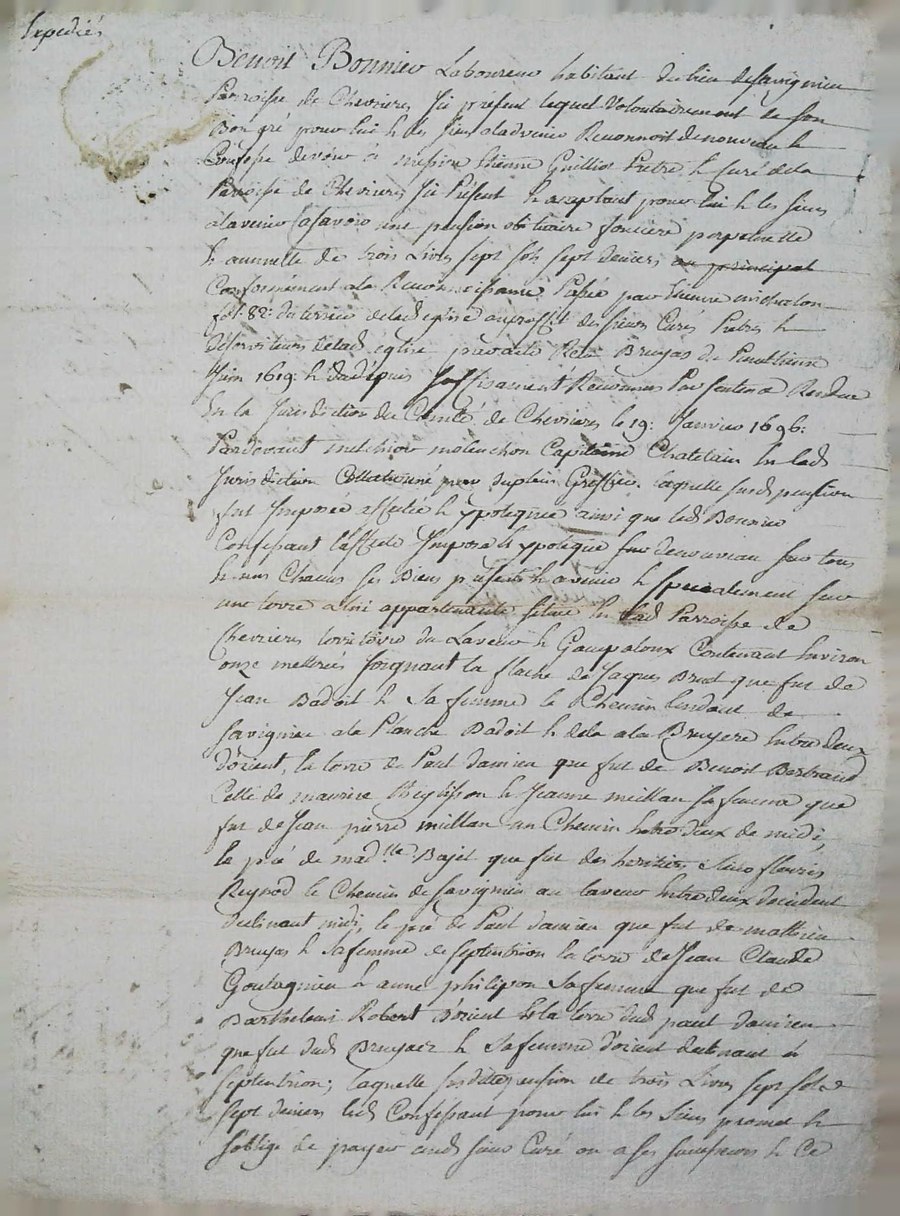 Expediés
Benoit Bonnier Laboureur habitant du lieu de Savignieu
Parroisse de Chevrieres Ici présent lequel Volontairement de son
Bon gré pour lui & les siens aladvenir Reconnoit denouveau &
Confesse devoir à messire Etienne Guilliot Prêtre & Curé dela
Paroisse de Chevrieres Ici Présent & acceptant pour lui & les siens
alavenir Scavoir une pension obituaire fonciere perpetuelle
& annuelle de trois Livres sept sols sept deniers en principal
Conformément ala Reconnoissance Passée par Etienne
fol: 82: du terrier delad eglise auproffit des sieurs Curés Prêtres &
Desserviteurs delad eglise Bruyas
Juin 1619: & dudepuis suffisament Reconnue Par sentence Rendue
En la Jurisdiction du Comté de Chevrieres le 19: Janvier 1696:
Pardevant melchior molenchon Capitaine Chatelain En lad
Jurisdiction Collationné par Duplain Greffier. laquelle susd pension
fut Imposée affectée & ypotequée ainsi que led Bonnier
Confessant l'affecte Impose & ypoteque sur denouveau sur tous
& uns Chacuns ses Biens présents & avenir & specialement sur
une terre alui appartenante située En lad Parroisse de
Chevrieres territoire du Laveur & Goupaloux Contenant Environ
onze metterées Joignant la flache de Jaques Brut que fut de
Jean Badoit & Sa femme le Chemin tendant de
Savignieu ala Planche Badoit & dela ala Bruyere Entredeux
d'orient, la terre de Paul Damien que fut de Benoit Bertrand
Celle de maurice & Jeanne millan sa femme que
fut de Jean pierre millan un Chemin Entredeux de midi,
le pré de mad.lle Bajet que fut des heritiers Sieur fleuris
Reynod le Chemin de Savignieu au laveur Entredeux d'occident
declinant midi, le pré de Paul Damien que fut de mathieu
Bruyas & Safemme de septentrion la terre de Jean Claude
Goutagnieu & anne philipon Safemme que fut de
Barthelemi Robert D'orient & la terre dud paul Damien
que fut dud Bruyas & Safemme d'orient declinant &
septentrion; laquelle susditte pension de trois Livres sept sols
sept deniers led Confessant pour lui & les Siens promet &
s'oblige de payer aud sieur Curé ou a ses successeurs & Ce